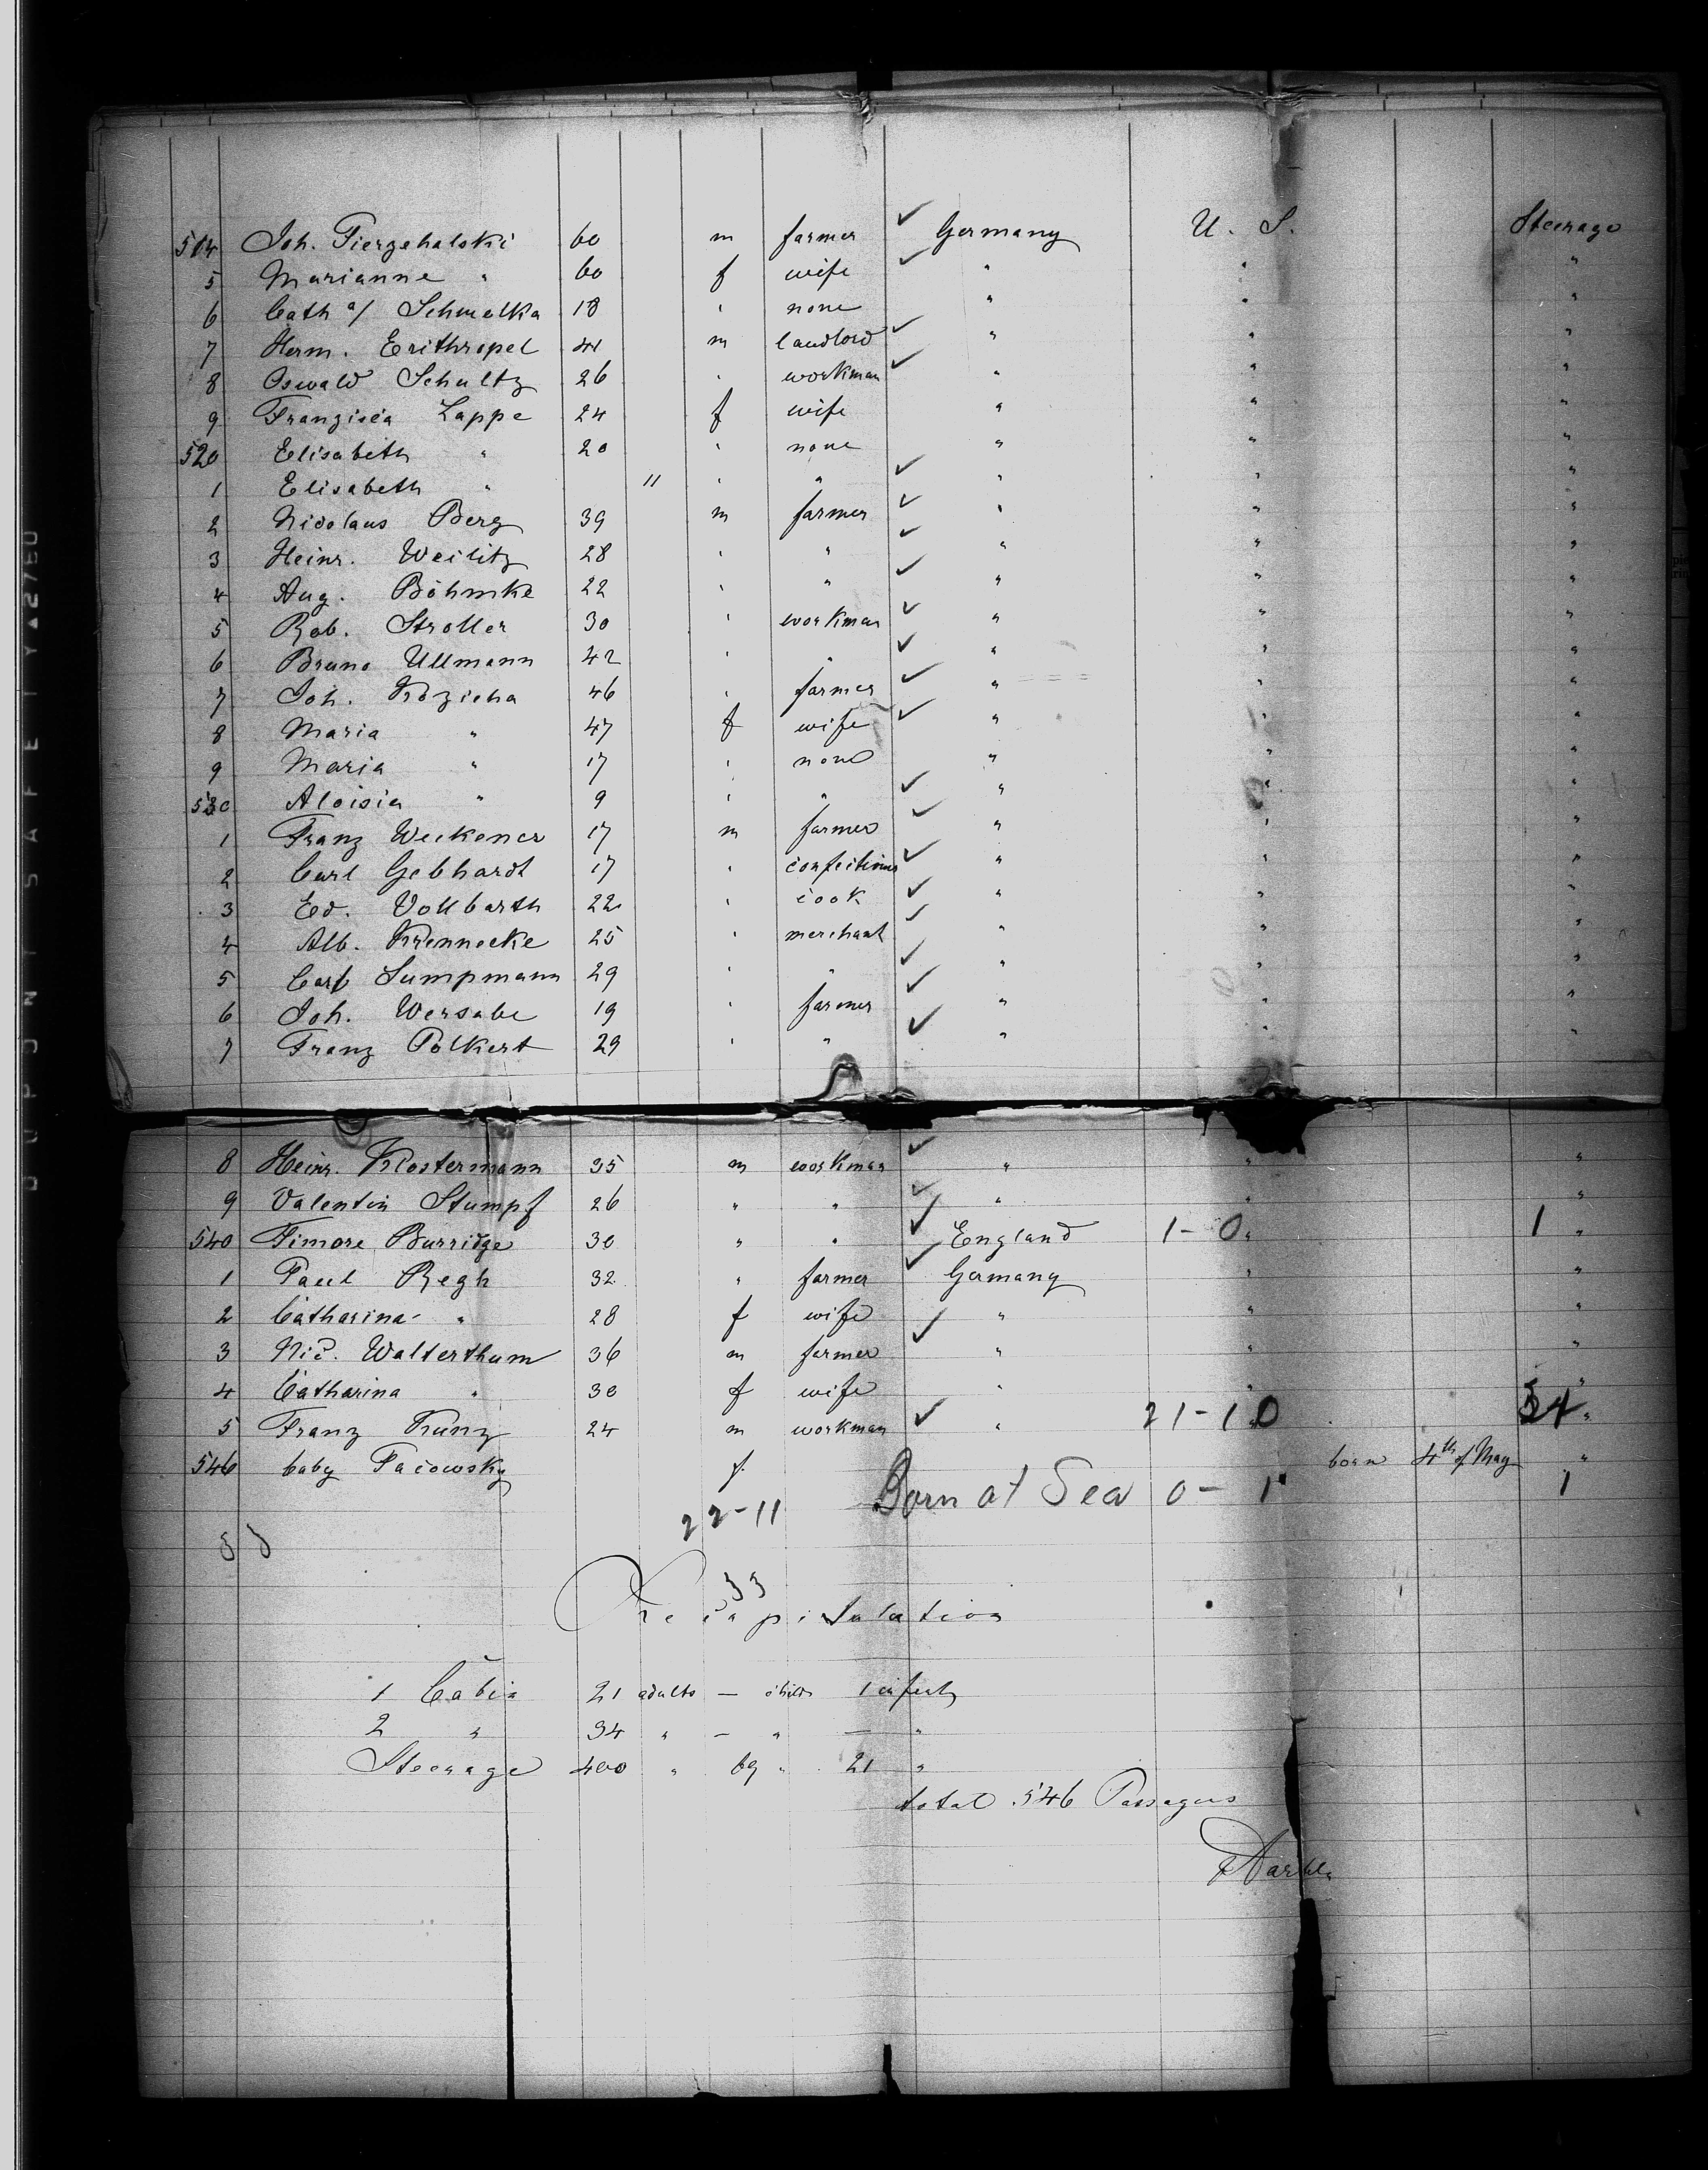 514 Joh. Pierzchalski 60 m farmer ✓ Germany U. S. Steerage
5 Marianne " 60 f wife ✓ " " "
6 Cath a/ Schmelka 18 " none " " "
7 Herm. Erithropel 41 m landlord ✓ " " "
8 Oswald Schultz 26 " workman ✓ " " "
9 Franzisca Lappe 24 f wife " " "
520 Elisabeth " 20 " none " " "
1 Elisabeth " 11 " " ✓ " " "
2 Nicolaus Berg 39 m farmer ✓ " " "
3 Heinr. Weilitz 28 " " ✓ " " "
4 Aug. Böhmke 22 " " ✓ " " "
5 Rob. Stroller 30 " workman ✓ " " "
6 Bruno Ullmann 42 " " ✓ " " "
7 Joh. Kozicha 46 " farmer ✓ " " "
8 Maria " 47 f wife ✓ " " "
9 Maria " 17 " none " " "
530 Aloisia " 9 " " ✓ " " "
1 Franz Weikener 17 m farmer ✓ " " "
2 Carl Gebhardt 17 " confectioner ✓ " " "
3 Ed. Vollbarth 22 " cook ✓ " " "
4 Alb. Krennecke 25 " merchant ✓ " " "
5 Carl Sumpmann 29 " " ✓ " " "
6 Joh. Wersabe 19 " farmer ✓ " " "
7 Franz Polkert 29 " " ✓ " " "
8 Heinr. Klostermann 35 m workman ✓ " " "
9 Valentin Stumpf 26 " " ✓ " " "
540 Timore Burridge 30 " " ✓ England 1-0 " 1 "
1 Paul Regh 32 " farmer ✓ Germany " "
2 Catharina " 28 f wife " " "
3 Nic. Walterthum 36 m farmer ✓ " " "
4 Catharina " 30 f wife " " "
5 Franz Kunz 24 m workman ✓ " 21-10 "
546 baby Pacowsky f. born 4th of May "
22-11 Born at Sea 0-1 1
33
Recapitulation
1 Cabin 21 adults — childr 1 infants
2 " 34 " — " — "
Steerage 400 " 69 " 21 "
total 546 Passagers